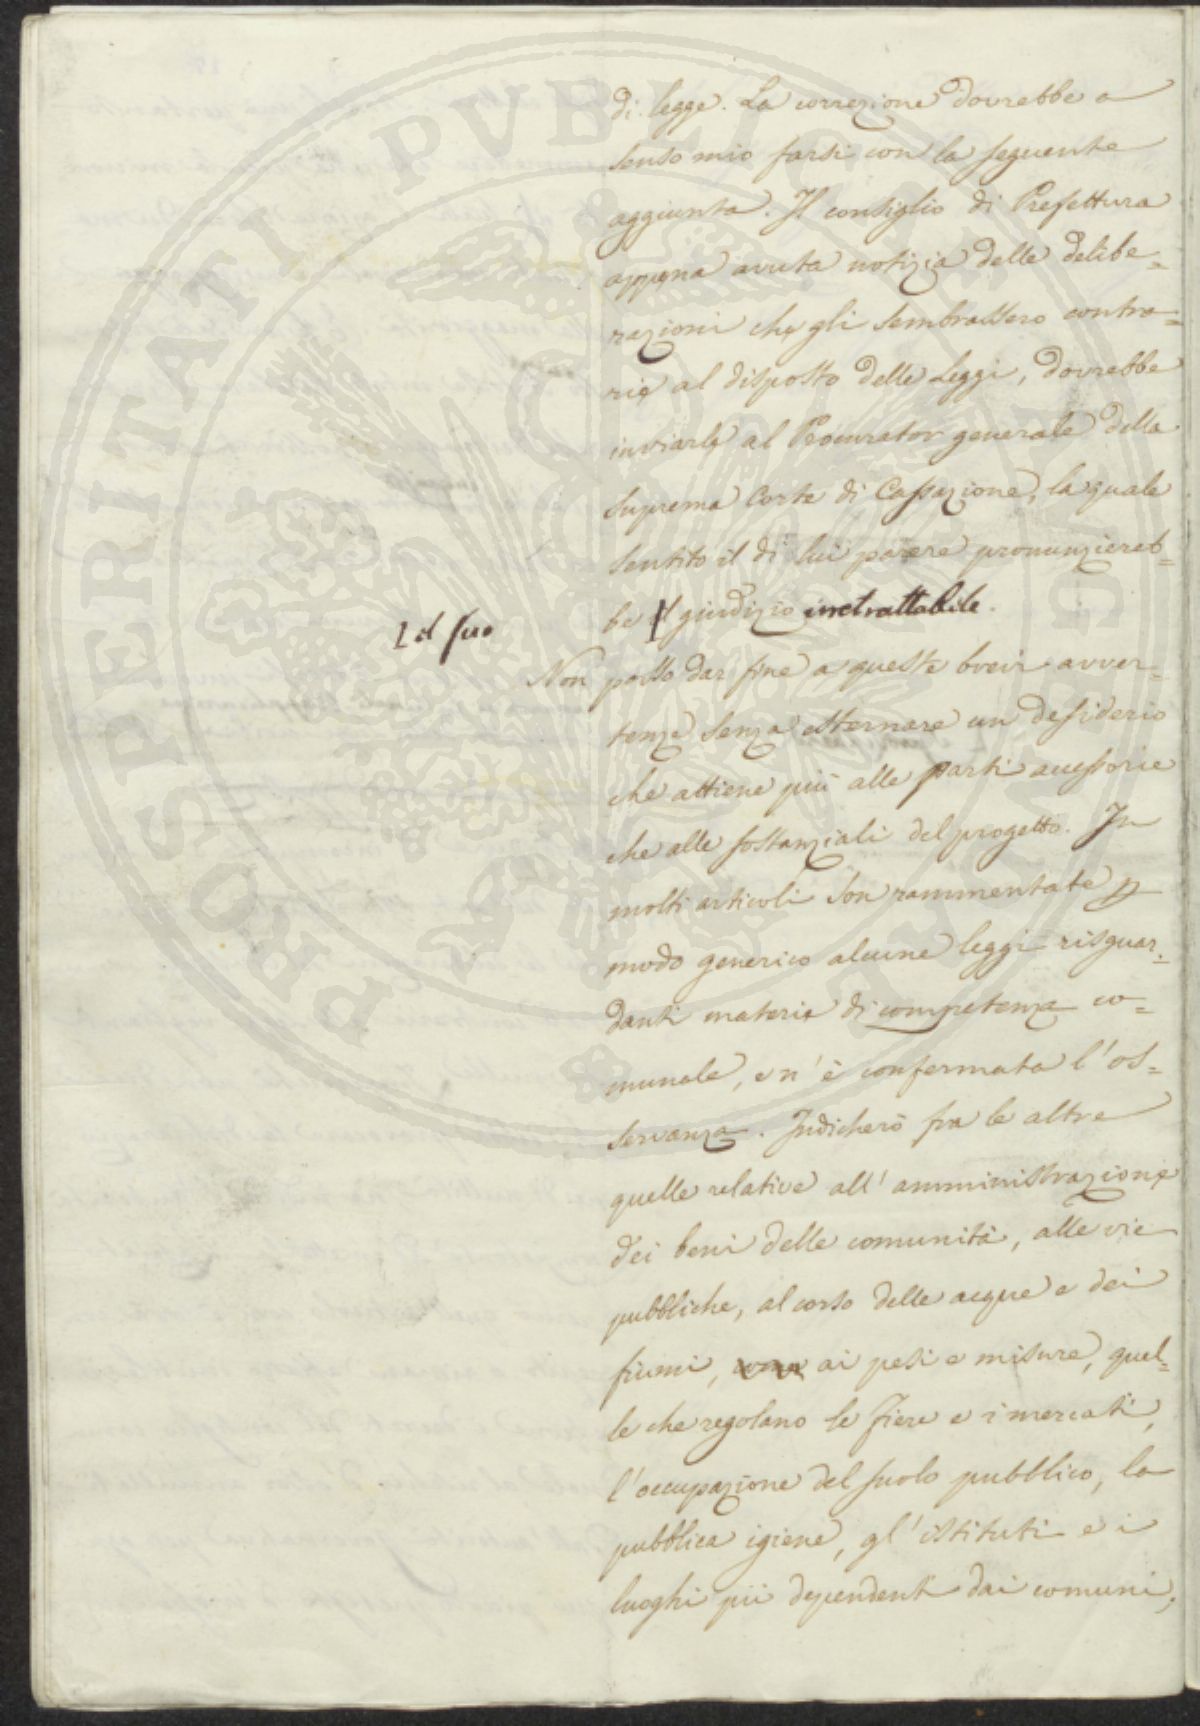 di legge. La correzione dovrebbe a
senso mio farsi con la seguente
aggiunta. Il consiglio di Prefettura
appena avuta notizia delle delibe=
razioni che gli sembrassero contra=
rie al disposto delle Leggi, dovrebbe
inviarle al Procurator generale della
suprema Corte di Cassazione, la quale
sentito il di lui parere pronunziereb=
be il giudizio inretrattabile.
il suo
Non posso dar fine a queste brevi avver=
tenze senza esternare un desiderio
che attiene più alle parti accessorie
che alle sostanziali del progetto. In
molti articoli son rammentate p
modo generico alcune leggi risguar=
danti materie di competenza co=
munale, e n'è confermata l'os=
servanza. Indicherò fra le altre
quelle relative all'amministrazione
dei beni delle comunità, alle vie
pubbliche, al corso delle acque e dei
fiumi, ai pesi e misure, quel=
le che regolano le fiere e i mercati,
l'occupazione del suolo pubblico, la
pubblica igiene, gl'istituti e i
luoghi pii dependenti dai comuni,
PROSPERITATI PVBLICAE AVGENDAE